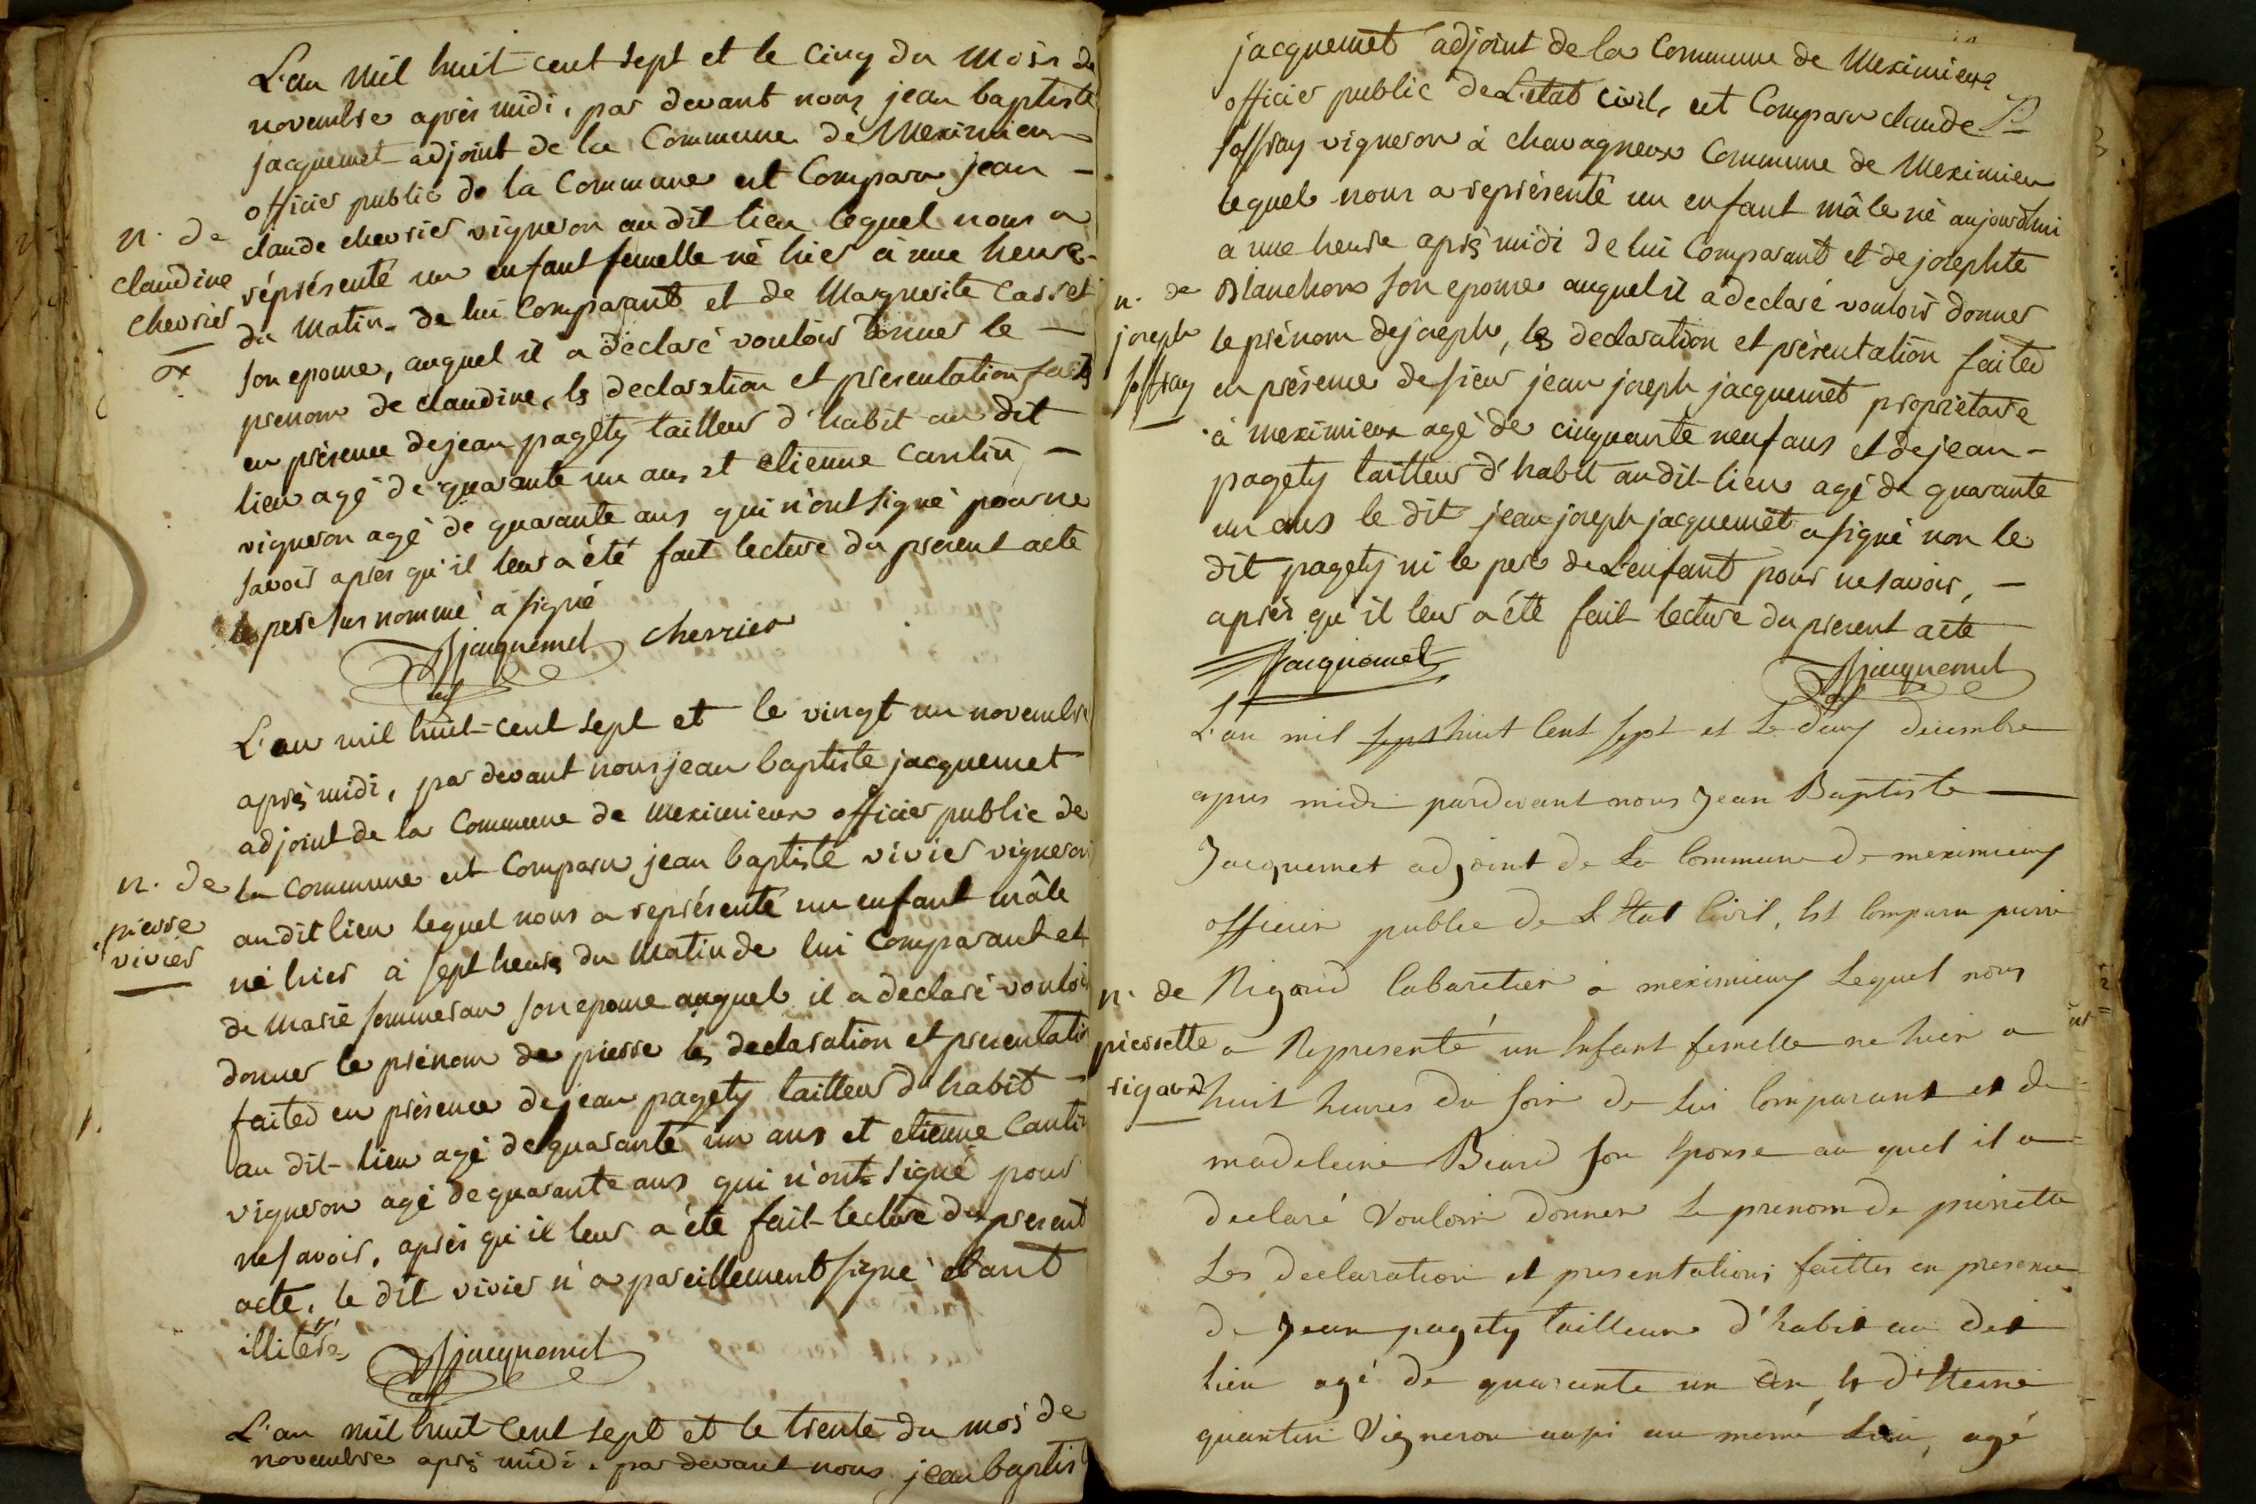 L'an mil huit cent sept et le cinq du mois de
novembre après midi, par devant nous jean baptiste
jacquemet adjoint de la Commune de Meximieux
officier public de la Commune est Comparu jean –
claude chevrier vigneron au dit lieu lequel nous a
réprésenté un enfant femelle né hier à une heure
du matin de lui Comparant et de Marguerite Casset
son epouse, auquel il a déclaré vouloir donner le –
prenom de claudine, les declaration et presentation faites
en présence de jean pagety tailleur d'habit au dit
lieu agé de quarante un ans et etienne Cantin –
vigneron agé de quarante ans qui n'ont signé pour ne
savoir après qu'il leur a été fait lecture du present acte
le pere sus nommé a signé
n. de
claudine
chevrier
Jacquemet chevrier
adj
L'an mil huit-cent sept et le vingt un novembre
après midi, par devant nous jean baptiste jacquemet
adjoint de la Commune de Meximieux officier public de
la commune est Comparu jean baptiste vivier vigneron
au dit lieu lequel nous a représenté un enfant mâle
né hier à sept heures du matin de lui Comparant et
de marie sommeran son epouse auquel il a declaré vouloir
donner le prénom de pierre les declaration et presentation
faites en présence de jean pagety tailleur d'habit –
au dit-lieu agé de quarante un ans et etienne Cantin
vigneron agé de quarante ans qui n'ont signé pour
ne savoir, après qu'il leur a été fait-lecture du present
acte, le dit vivier n'a pareillement signé étant
illiteré
n. de
pierre
vivier
Jacquemet
adj
L'an mil huit Cent sept et le trente du mois de
novembre après midi, par devant nous jean baptiste
jacquemet adjoint de la Commune de Meximieux
officier public de L'etat civil, est Comparu claude
soffray vigneron à chavagneux Commune de Meximieux
lequel nous a représenté un enfant mâle né aujourd'hui
à une heure après midi de lui Comparant et de josephte
Blanchon son epouse auquel il a declaré vouloir donner
le prénom de joseph, les declaration et présentation faites
en présence de sieur jean joseph jacquemet propriétaire
à meximieux agé de cinquante neuf ans et de jean –
pagety tailleur d'habit au dit-lieu agé de quarante
un ans le dit jean joseph jacquemet a signé non le
dit pagety ni le pere de L'enfant pour ne savoir, –
après qu'il leur a été fait lecture du present acte
n. de
joseph
soffray
Jacquemet Jacquemet
adj
L'an mil sept huit Cent sept et Le deux decembre
apres midi pardevant nous Jean Baptiste
Jacquemet adjoint de La Commune de meximieux
officier public de L'Etat Civil, Est Comparu pierre
Rigaud Cabaretier à meximieux Lequel nous
a Representé un Enfant femelle ne hier a
huit heures du soir de lui Comparant et de
madeleine Beard son Epouse au quel il a
declaré Vouloir donner Le prenom de pierrette
Les declaration et presentations faittes en presence
de Jean pagety tailleur d'habit au dit
lieu agé de quarante un an Et d'Etienne
quantin Vigneron aussi au même Lieu, agé
n. de
pierrette
rigaud